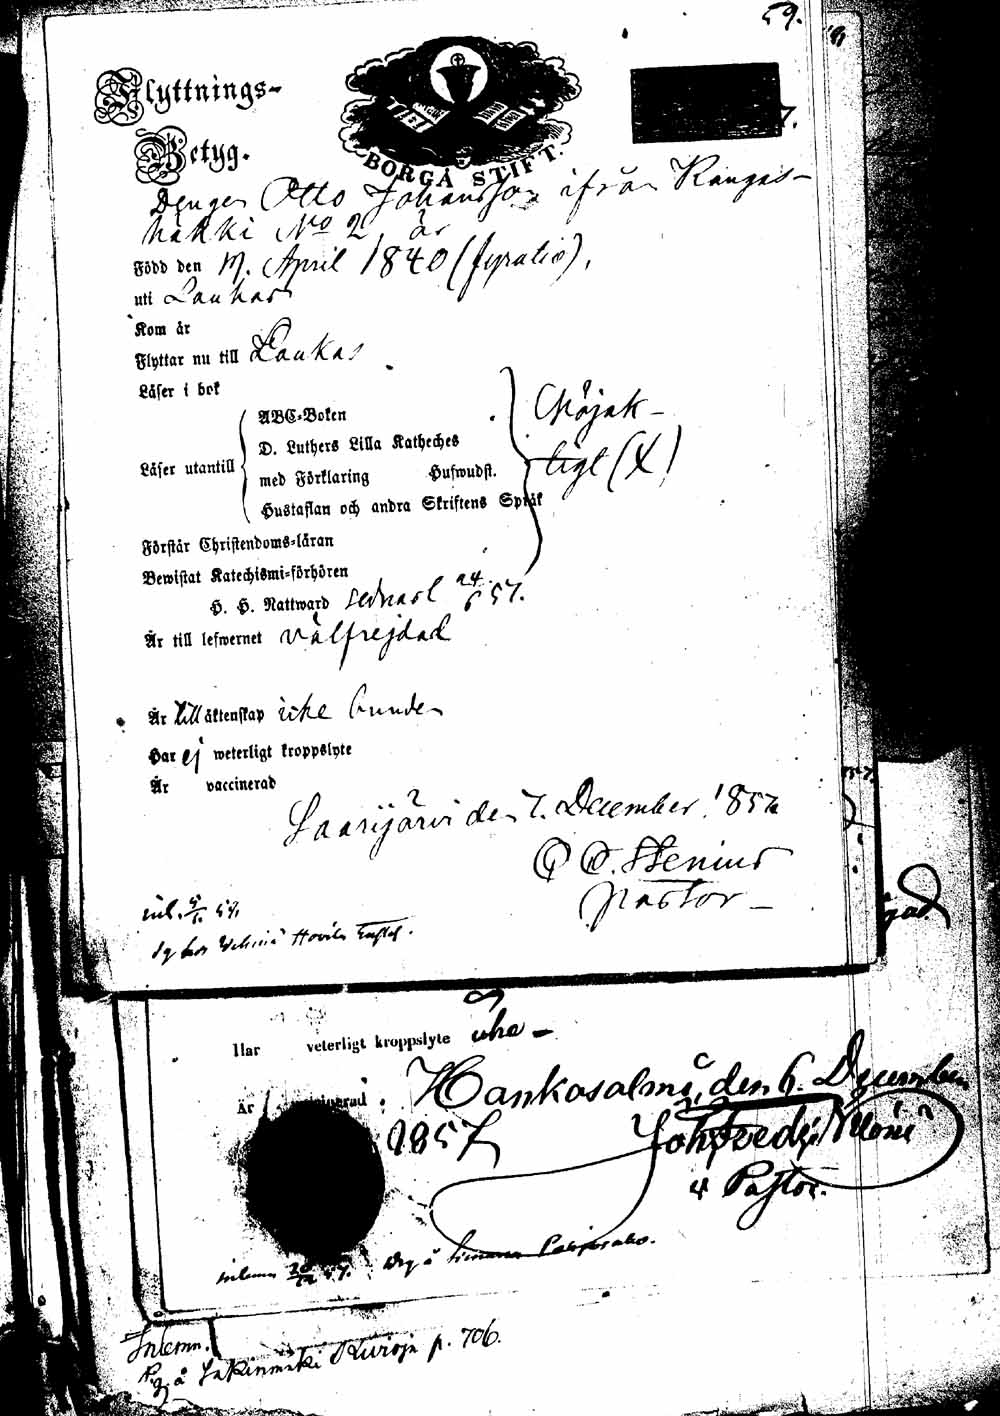 59.
Flyttnings-
Betyg.
BORGÅ STIFT.
Drengen Otto Johansson ifrån Kangas-
häkki No 2, är
Född den 17. April 1840 (fyratio),
uti Laukas
Kom år
Flyttar nu till Laukas
Läser i bok
Läser utantill
ABC-Boken
D. Luthers Lilla Katheches
med Förklaring Hufwudst.
Hustaflan och andra Skriftens Språk
Nöjak-
tigt (X)
Förstår Christendoms-läran
Bewistat Katechismi-förhören
H. H. Nattward sednast 24/6 57.
Är till lefwernet välfrejdad
Är till äktenskap icke bunden
Har ej weterligt kroppslyte
Är vaccinerad
Saarijärvi den 7. December 1857
Stenius
Pastor
inl.
Har veterligt kroppslyte
Är
Hankasalmi, den 6. December
1857
Pastor.
Inlemn.
p. 706.